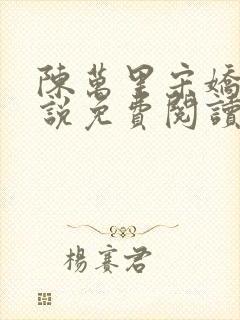 陳萬里宋嬌
說免費閱讀
楊賽君